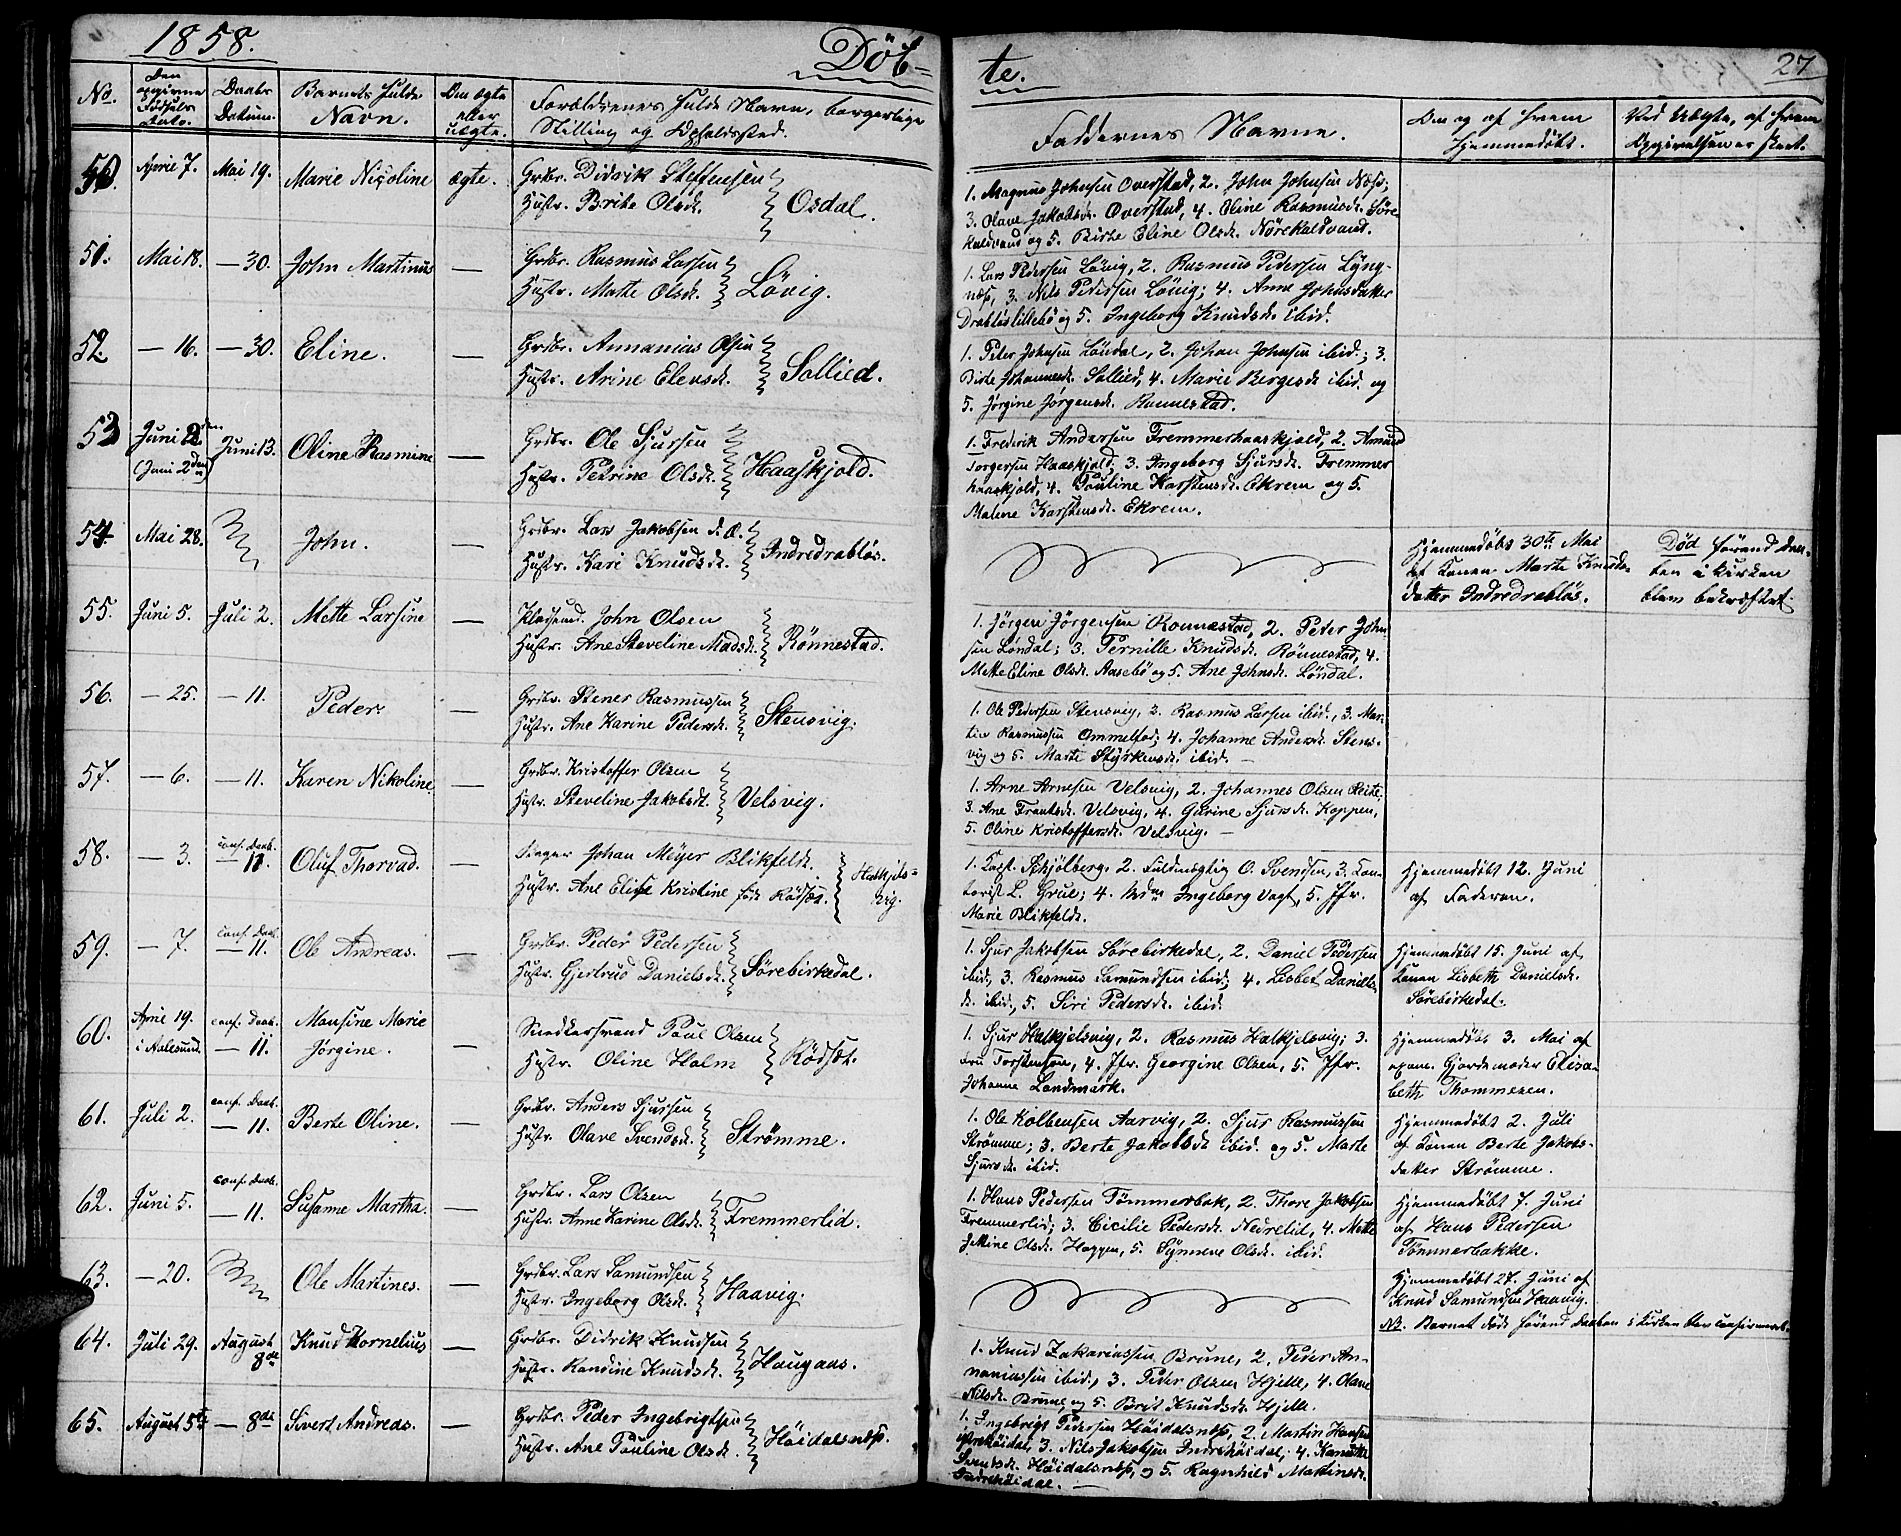 1858.
Döb-
te.
27
No.
Den opgivne Fødsels Dato.
Daabs Datum.
Barnets fulde Navn.
Om ægte eller uægte.
Forældrenes fulde Navn, borgerlige Stilling og Opholdssted.
Faddernes Navne.
Om og af hvem hjemmedöbt.
Ved Uægte, af hvem Opgivelsen er skeet.
50. April 7. Mai 19. Marie Nicoline ægte. Grdbr. Didrik Steffensen
Hustr. Brite Olsdr. Osdal.
1. Magnus Johnsen Overstad, 2. John Johnsen Næss;
3. Olave Jakobsdr. Overstad, 4. Eline Rasmusdr. Søre
Kaldvand og 5. Birte Eline Olsdr. Nörekaldvand.
51. Mai 18. — 30. John Martinus — Grdbr. Rasmus Larsen
Hustr. Matte Olsdr. Lövig.
1. Lars Pedersen Lövig, 2. Rasmus Pedersen Lyng-
næss, 3. Nils Pedersen Lövig; 4. Anne Johnsdatter
Drabløslillebö og 5. Ingeborg Knudsdr. ibid.
52 — 16. — 30. Eline. — Grdbr. Annanias Olsen
Hustr. Arine Elensdr. Sollied.
1. Peter Johnsen Löndal, 2. Johan Johnsen ibid.; 3.
Birte Johannesdr. Sollied, 4. Marie Bergesdr. ibid. og
5. Jørgine Jørgensdr. Ronnestad.
53 Juni 2den Juni 13. Oline Rasmine — Grdbr. Ole Sjursen
(Juni 2den) Hustr. Petrine Olsdr. Haaskjold.
1. Frederik Andersen Fremmerhaaskjold, 2. Amund
Torgersen Haaskjold; 3. Ingeborg Sjursdr. Fremmer
haaskjold, 4. Pauline Karstensdr. Ekrem og 5.
Malene Karstensdr. Ekrem.
54. Mai 28. John. — Grdbr. Lars Jakobsen d. Æ.
Hustr. Kari Knudsdr. Indredrabløs.
Hjemmedøbt 30te Mai
af Konen Marte Knuds-
datter Indredrabløs.
Död førend Daa-
ben i Kirken
blev bekræftet.
55. Juni 5. Juli 2. Mette Larsine — Pladsmd. John Olsen
Hustr. Ane Steveline Madsdr. Rönnestad.
1. Jörgen Jörgensen Ronnestad, 2. Peter John
sen Löndal; 3. Pernille Knudsdr. Rönnestad, 4.
Mette Eline Olsdr. Aasebö og 5. Ane Johnsdr. Löndal.
56. — 25. — 11. Peder. — Grdbr. Stener Rasmussen
Hustr. Ane Karine Pedersdr. Stensvig.
1. Ole Pedersen Stensvig, 2. Rasmus Larsen ibid., 3. Mar-
tin Rasmussen Ommelstad; 4. Johanne Andersdr. Stens-
vig og 5. Marte Styrkersdr. ibid. —
57. — 6. — 11. Karen Nikoline. — Grdbr. Kristoffer Olsen
Hustr. Steveline Jakobsdr. Velsvig.
1. Arne Arnesen Velsvig, 2. Johannes Olsen Reite;
3. Ane Frantsdr. Velsvig, 4. Gurine Sjursdr. Koppen,
5. Oline Kristoffersdr. Velsvig. —
58. — 3. conf. Daab. — 11. Oluf Thorvad. — Johan Meyer Blikfeldt.
Hustr. Ane Elise Kristine født Rödset. Hatkjels-
vig.
1. Skjölberg, 2. Fuldmægtig O. Svendsen, 3. Kon-
torist L. Grue; 4. Mdm Ingeborg Vagt, 5. Jfr.
Marie Blikfeldt.
Hjemmedöbt 12. Juni
af Faderen.
59. — 7. conf. Daab. — 11. Ole Andreas. — Grdbr. Peder Pedersen
Hustr. Gjertrud Danielsdr. Sørebirkedal.
1. Sjur Jakobsen Sørebirkedal, 2. Daniel Pedersen
ibid., 3. Rasmus Samundsen ibid; 4. Lisbet Daniels
dr. ibid., 5. Siri Pedersdr. ibid.
Hjemmedöbt 15. Juni af
Konen Lisbeth Danielsdr.
Sørebirkedal.
60. April 19. i Aalesund. conf. Daab. — 11. Monsine Marie
Jörgine. — Snedkersvend Poul Olsen
Hustr. Oline Holm Rödset.
1. Sjur Hatkjelsvig, 2. Rasmus Hatkjelsvig; 3.
Fru Torstensen, 4. Jfr. Georgine Olsen, 5. Jfr.
Johanne Landmark.
Hjemmedöbt 3. Mai af
exam. Gjordemoder Elisa-
beth Thommesen.
61. Juli 2. conf. Daab. — 11. Berte Oline. — Grdbr. Anders Sjursen
Hustr. Olave Svendsdr. Strömme.
1. Ole Kolbensen Aarvig, 2. Sjur Rasmussen
Strömme; 3. Berte Jakobsdr ibid. og 5. Marte
Sjursdr. ibid.
Hjemmedöbt 2. Juli
af Konen Berte Jakobs-
datter Strömme.
62. Juni 5. conf. Daab. — 11. Susanne Martha. — Grdbr. Lars Olsen
Hustr. Anne Karine Olsdr. Fremmerlid.
1. Hans Pedersen Tömmerbak, 2. Thore Jakobsen
Fremmerlid; 3. Cicilie Pedersdr. Nedrelid, 4. Mette
Jettine Olsdr. Hoggen, 5. Synneve Olsdr. ibid.
Hjemmedöbt 7. Juni
af Hans Pedersen
Tömmerbakke.
63. — 20. Ole Martines. — Grdbr. Lars Samundsen
Hustr. Ingeborg Olsdr. Haavig.
Hjemmedöbt 27. Juni af
Knud Samundsen Haavig.
NB. Barnet døde førend Daaben i Kirken blev confirmeret.
64. Juli 29. August 8de Knud Kornelius — Grdbr. Didrik Knudsen
Hustr. Kandine Knudsdr. Haugaas.
1. Knud Zakariassen Brune, 2. Peder An-
naniassen ibid., 3. Peder Olsen Hjelle, 4. Olave
Nilsdr. Brune, og 5. Brit Knudsdr. Hjelle.
65. August 5te — 8de Sivert Andreas. — Grdbr. Peder Ingebrigtsen
Hustr. Ane Pauline Olsdr. Höidalsnæss.
1. Ingebrigt Pedersen Höidalsnæss, 2. Martin Hansen
Ytrehöidal, 3. Nils Jakobsen Indrehöidal; 4. Kanutte
Svendsdr. Höidalsnæss, og 5. Ragnhild Martinsdr.
Indrehöidal. —